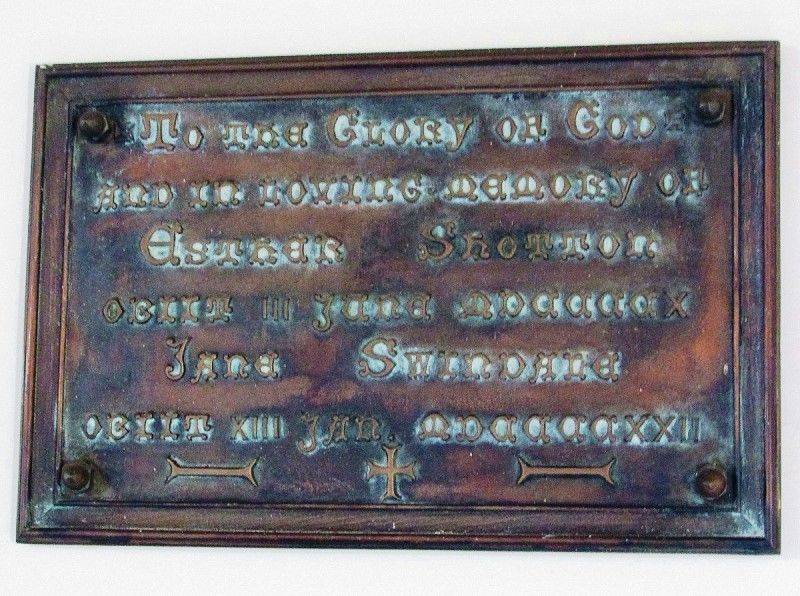 To the Glory of God
and in loving memory of
Esther Shotton
obiit III June MDCCCCX
Jane Swindale
obiit XIII Jan. MDCCCCXXII